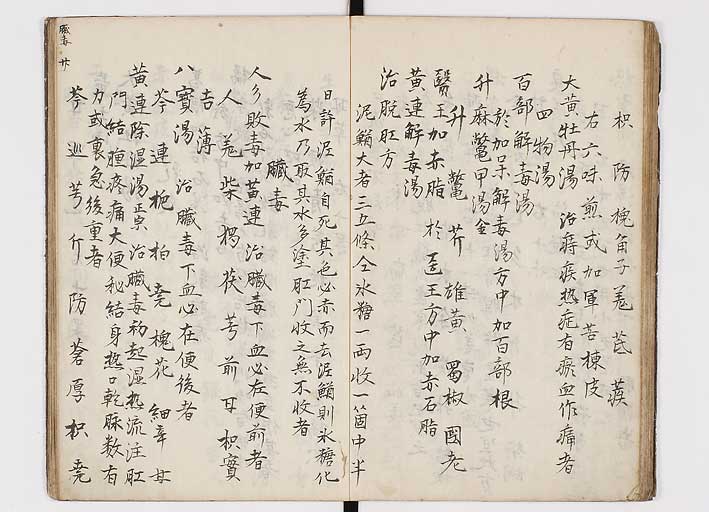 枳防槐角子羌芪蒺
右六味煎或加軍苦楝皮
大黄牡丹湯 治痔疾热症有瘀血作痛者
四物湯
百部解毒湯
於加味解毒湯方中加百部根
升麻鱉甲湯 金
升鱉芥雄黄蜀椒國老
醫王加赤脂 於医王方中加赤石脂
黄連解毒湯
治脱肛方
泥鰌大者三五條仝氷糖一両收一箇中半
日許泥鰌自死其色必赤而去泥鰌則氷糖化
為水乃取其水多塗肛門收之無不收者
臓毒
人参敗毒加黄連 治臓毒下血必在便前者
人羌柴独茯芎前甘枳實
吉薄
八寳湯 治臓毒下血必在便後者
芩連梔柏尭槐花細辛甘
黄連除湿湯 正宗 治臓毒初起湿热流注肛
門結腫疼痛大便秘結身热口乾脉数有
力或裏急後重者
芩 芎 防蒼厚枳尭
臓毒 廿